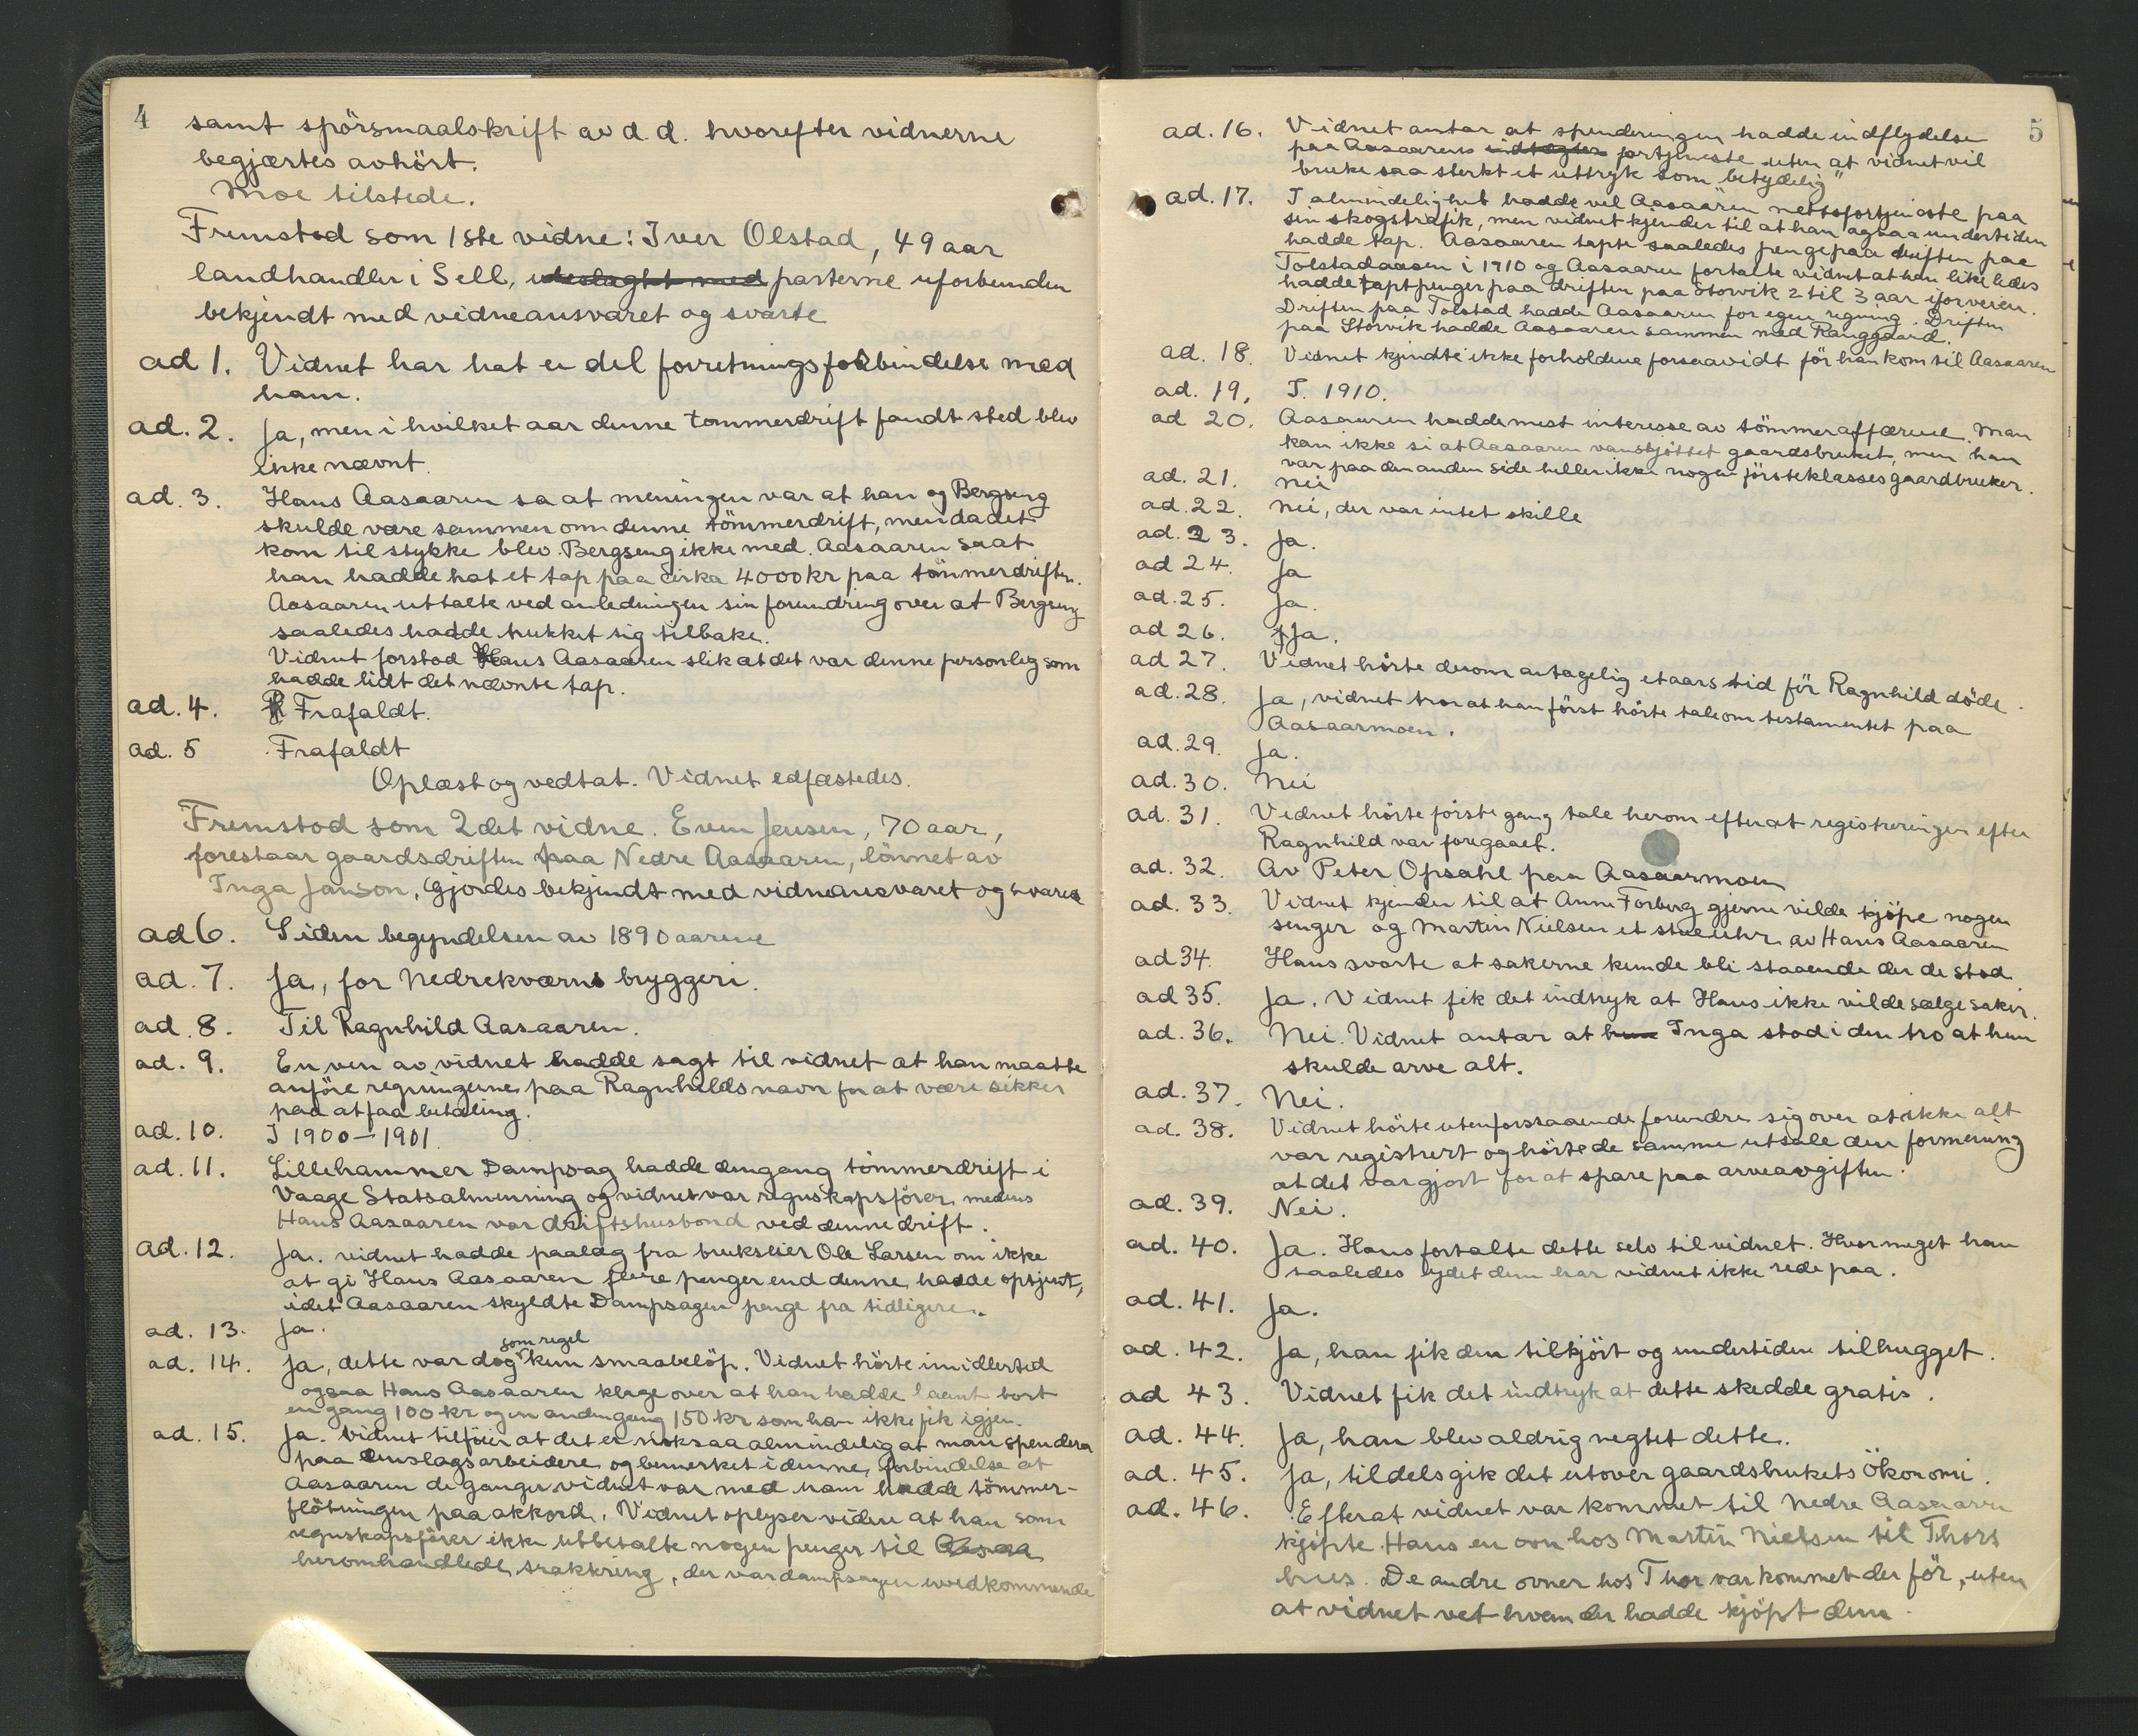 4
samt spörsmaalskrift av d.d. hvorefter vidnerne
begjærtes avhört.
Moe tilstede.
Fremstod som 1ste vidne: Iver Olstad, 49 aar
landhandler i Sell, parterne uforbunden
bekjendt med vidneansvaret og svarte
ad 1. Vidnet har hat en del forretningsforbindelse med
ham.
ad. 2. Ja, men i hvilket aar denne tømmerdrift fandt sted blev
ikke nævnt.
ad. 3. Hans Aasaaren sa at meningen var at han og Bergseng
skulde være sammen om denne tömmerdrift, men da det
kom til stykke blev Bergseng ikke med. Aasaaren sa at
han hadde hat et tap paa cirka 4000 kr paa tömmerdriften.
Aasaaren uttalte ved anledningen sin forundring over at Bergseng
saaledes hadde trukket sig tilbake.
Vidnet forstod Hans Aasaaren slik at det var denne personlig som
hadde lidt det nævnte tap.
ad. 4. Frafaldt.
ad. 5 Frafaldt
Oplæst og vedtat. Vidnet edfæstedes.
Fremstod som 2det vidne. Even Jensen, 70 aar,
forestaar gaardsdriften paa Nedre Aasaaren, lönnet av
Inga Janson, gjordes bekjendt med vidneansvaret og svares
ad 6. Siden begyndelsen av 1890 aarene
ad. 7. Ja, for Nedrekværns bryggeri.
ad. 8. Til Ragnhild Aasaaren.
ad. 9. En ven av vidnet hadde sagt til vidnet at han maatte
anföre regningerne paa Ragnhilds navn for at være sikker
paa at faa betaling.
ad. 10. I 1900-1901.
ad. 11. Lillehammer Dampsag hadde dengang tömmerdrift i
Vaage Statsalmenning og vidnet var regnskapsförer, medens
Hans Aasaaren var driftshusbond ved denne drift.
ad. 12. Ja. vidnet hadde paalæg fra brukseier Ole Larsen om ikke
at gi Hans Aasaaren flere penger end denne hadde optjent,
idet Aasaaren skyldte Dampsagen penge fra tidligere.
ad. 13. Ja.
ad. 14. Ja, dette var dog som regel kun smaabelöp. Vidnet hörte imidlertid
ogsaa Hans Aasaaren klage over at han hadde laant bort
en gang 100 kr og en anden gang 150 kr som han ikke fik igjen.
ad. 15. Ja. Vidnet tilföier at det er noksaa almindelig at man spendera
paa tömslagsarbeidere og bemerket i denne forbindelse at
Aasaaren de ganger vidnet var med ham hadde tömmer-
flötningen paa akkord. Vidnet oplyser videre at han som
regnskapsförer ikke utbetalte nogen penger til
heromhandlede trakkring, der var dampsagen uvedkommende
5
ad. 16. Vidnet antar at spenderingen hadde indflydelse
paa Aasaarens fortjeneste uten at vidnet vil
bruke saa sterkt et uttryk som "betydelig"
ad. 17. I almindelighet hadde vel Aasaaren nettofortjeneste paa
sin skogstrafik, men vidnet kjender til at han ogsaa undertiden
hadde tap. Aasaaren tapte saaledes penge paa driften paa
Tolstadaasen i 1910 og Aasaaren fortalte vidnet at han likeledes
hadde tapt penger paa driften paa Storvik 2 til 3 aar iforveien.
Driften paa Tolstad hadde Aasaaren for egen regning. Driften
paa Storvik hadde Aasaaren sammen med Ranggaard.
ad. 18. Vidnet kjendte ikke forholdene forsaavidt för han kom til Aasaaren
ad. 19. I. 1910.
ad 20. Aasaaren hadde mest interesse av tömmeraffærene. Man
kan ikke si at Aasaaren vanskjöttet gaardsbruket, men han
var paa den anden side heller ikke nogen försteklasses gaardbruker.
ad. 21. Nei
ad. 22. Nei, der var intet skille
ad. 23. Ja.
ad 24. Ja
ad. 25. Ja.
ad 26. Ja.
ad 27. Vidnet hörte derom antagelig et aars tid för Ragnhild döde.
ad. 28. Ja, vidnet tror at han först hörte tale om testamentet paa
Aasaarmoen.
ad. 29. Ja.
ad. 30. Nei
ad. 31. Vidnet hörte förste gang tale herom efterat registreringen efter
Ragnhild var foregaaet.
ad. 32. Av Peter Opsahl paa Aasaarmoen
ad. 33. Vidnet kjender til at Anne Forberg gjerne vilde kjöpe nogen
senger og Martin Nielsen et stueuhr av Hans Aasaaren
ad 34. Hans svarte at sakerne kunde bli staaende der de stod
ad 35. Ja. Vidnet fik det indtryk at Hans ikke vilde sælge saker.
ad. 36. Nei. Vidnet antar at Inga stod i den tro at hun
skulde arve alt.
ad. 37. Nei.
ad. 38. Vidnet hörte utenforstaaende forundre sig over at ikke alt
var registrert og hörte de samme uttale den formening
at det var gjort for at spare paa arveavgiften.
ad. 39. Nei.
ad. 40. Ja. Hans fortalte dette selv til vidnet. Hvor meget han
saaledes ydet dem har vidnet ikke rede paa.
ad. 41. Ja.
ad. 42. Ja, han fik den tilkjört og undertiden tilhugget.
ad 43. Vidnet fik det indtryk at dette skedde gratis.
ad. 44. Ja, han blev aldrig negtet dette.
ad. 45. Ja, tildels gik det utover gaardsbrukets Ökonomi.
ad. 46. Efterat vidnet var kommet til Nedre Aasaaren
kjöpte Hans en ovn hos Martin Nielsen til Thors
hus. De andre ovner hos Thor var kommet der för, uten
at vidnet vet hvem der hadde kjöpt dem.